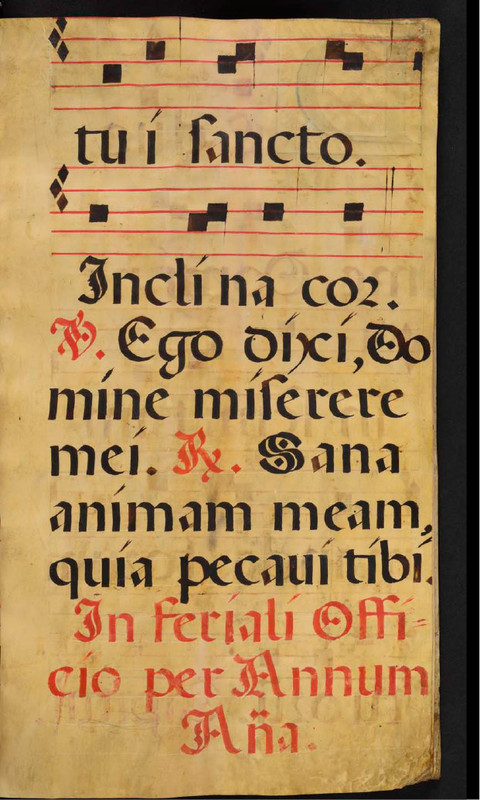 tu i sancto.
Incli na cor.
℣. Ego dixi, Do
mine miserere
mei. ℟. Sana
animam meam,
quia pecaui tibi.
In feriali Offi-
cio per Annum
Aña.